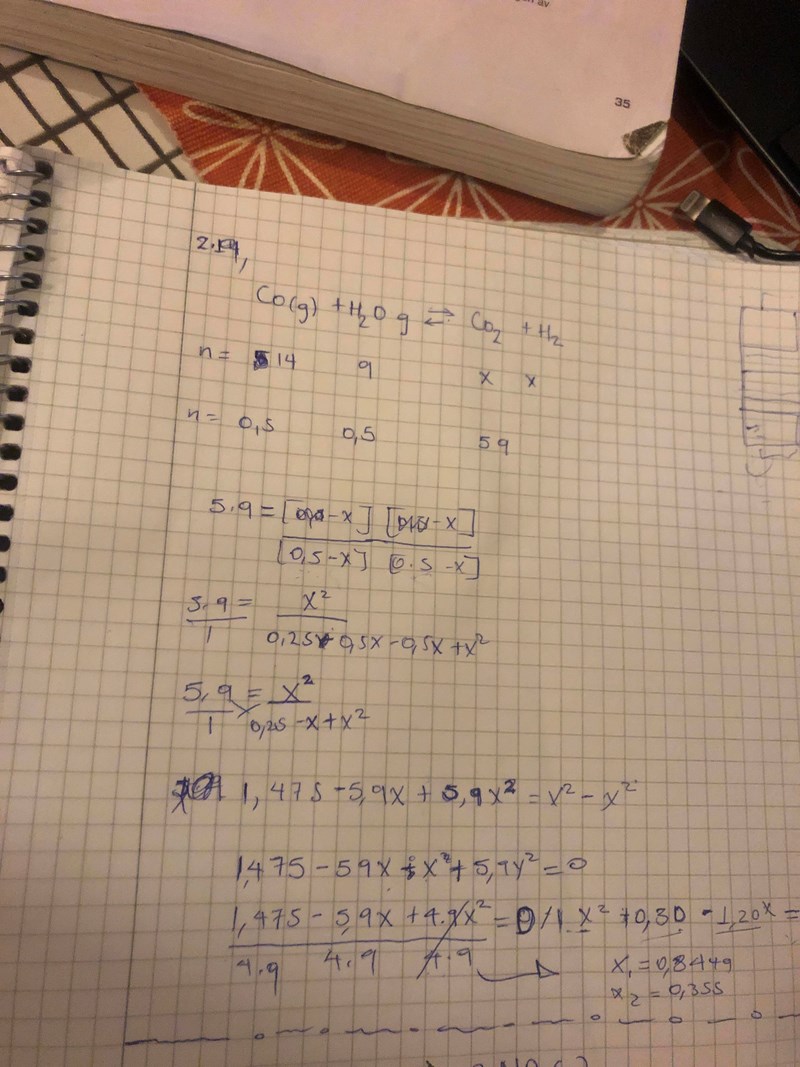 35
2.19,
Co(g) + H₂O g ⇌ Co₂ + H₂
n= 14 9 x x
n= 0,5 0,5 59
5.9 = [ -x] [ -x]
[0,5-x] [0.5 -x]
5.9 = x²
1 0,25 - 0,5x - 0,5x + x²
5,9 = x²
1 0,25 - x + x²
1,475 - 5,9x + 5,9x² = x² - x²
1,475 - 59x ÷ x² + 5,9x² = 0
1,475 - 5,9x + 4.9x² = 0 / 1 x² +0,30 - 1,20x =
4.9 4.9 4.9
x₁ = 0,8449
x₂ = 0,355